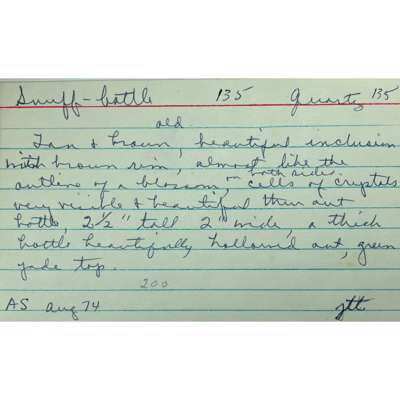 Snuff-bottle 135 Quartz 135
old
Tan & brown, beautiful inclusion
with brown rim, almost like the
outline of a blossom, - both sides
cells of crystals
very visible & beautiful thru out
bottle, 2 1/2" tall 2" wide, a thick
bottle beautifully hollowed out, green
jade top.
200
AS Aug 74